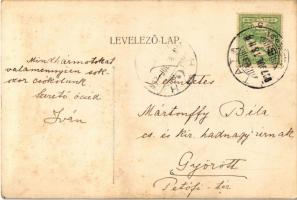 LEVELEZŐ-LAP.
Mindhármotokat
valamennyien sok-
szor csókolunk
szerető öcséd
Iván
Tekintetes
Mártonffy Béla
cs. és kir. hadnagy urnak
Győrött
Petőfi-tér
TATA